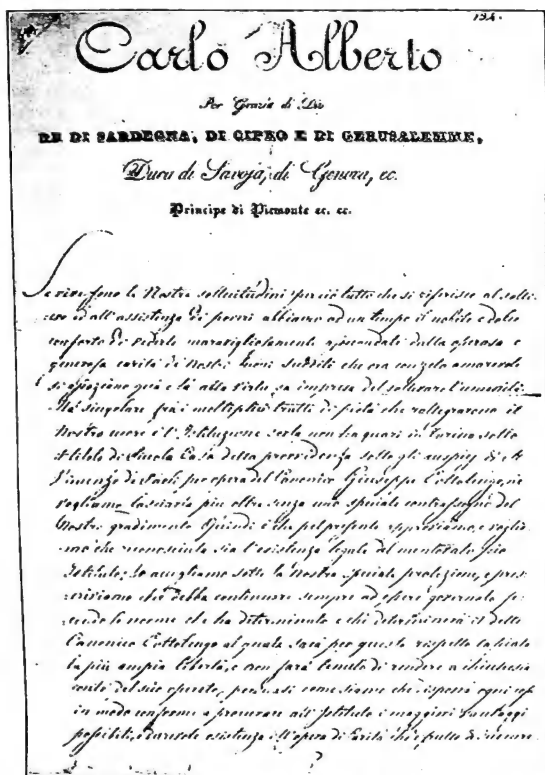 194.
Carlo Alberto
Per Grazia di Dio
RE DI SARDEGNA, DI CIPRO E DI GERUSALEMME,
Duca di Savoja, di Genova, ec.
Principe di Piemonte ec. ec.
Se vive sono le Nostre sollecitudini per ciò tutto che si riferisce al solli-
evo ed all'assistenza de' poveri abbiamo ad un tempo il nobile e dolce
conforto di vederle maravigliosamente secondate dalla operosa e
generosa carità di Nostri buoni sudditi che ora con zelo amorevole
si associano quà e là alla impresa del sollevare l'umanità.
Ma singolare fra i molteplici tratti di pietà che rallegrarono il
Nostro cuore è l'Istituzione sorta non ha guari in Torino sotto
il titolo di Piccola Casa della provvidenza sotto gli auspizj di S.
Vincenzo de' Paoli per opera del Canonico Giuseppe Cottolengo, nè
vogliamo lasciarla più oltre senza uno speciale contrassegno del
Nostro gradimento. Quindi è che pel presente approviamo, e voglia-
mo che riconosciuta sia l'esistenza legale del mentovato pio
Istituto; lo accogliamo sotto la Nostra speciale protezione, e pres-
criviamo che debba continuare sempre ad essere governato se-
condo le norme che ha determinato e che determinerà il detto
Canonico Cottolengo al quale sarà per questo rispetto lasciata
la più ampia libertà, e non sarà tenuto di rendere a chiunque sia
conto del suo operato, persuasi come siamo che disporrà ogni cosa
in modo conforme a procurare all'Istituto i maggiori vantaggi
possibili, e durevole esistenza all'opera di carità che è frutto di